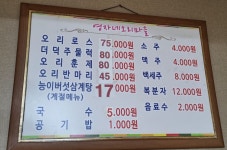 영자네오리마을
오리로스 75.000원
더덕주물럭 80.000원
오리훈제 80.000원
오리반마리 45.000원
능이버섯삼계탕 17.000원
(계절메뉴)
국수 5.000원
공기밥 1.000원
소주 4.000원
맥주 4.000원
백세주 8.000원
복분자 12.000원
음료수 2.000원